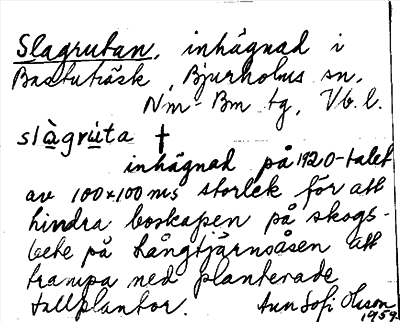 Slagrutan, inhägnad i
Bastuträsk, Bjurholms sn,
Nm-Bm tg, Vb. l.
slàgrúta †
inhägnad på 1920-talet
av 100x100 ms storlek för att
hindra boskapen på skogs-
bete på Långtjärnsåsen att
trampa ned planterade
tallplantor. Ann Sofi Olsson
1959